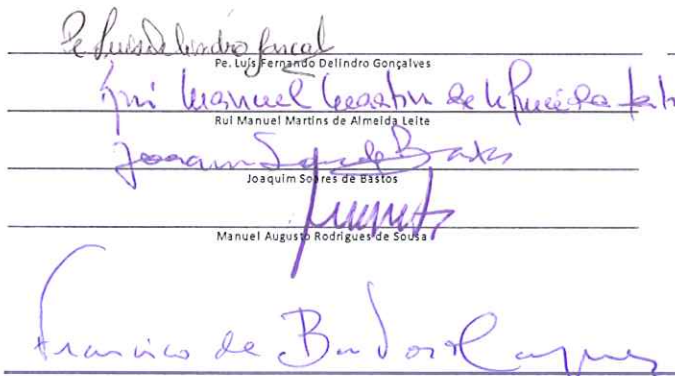 Pe Luís Delindro
Pe. Luís Fernando Delindro Gonçalves
Rui Manuel Martins de Almeida Leite
Rui Manuel Martins de Almeida Leite
Joaquim Soares de Bastos
Joaquim Soares de Bastos
Manuel Augusto Rodrigues de Sousa
Francisco de